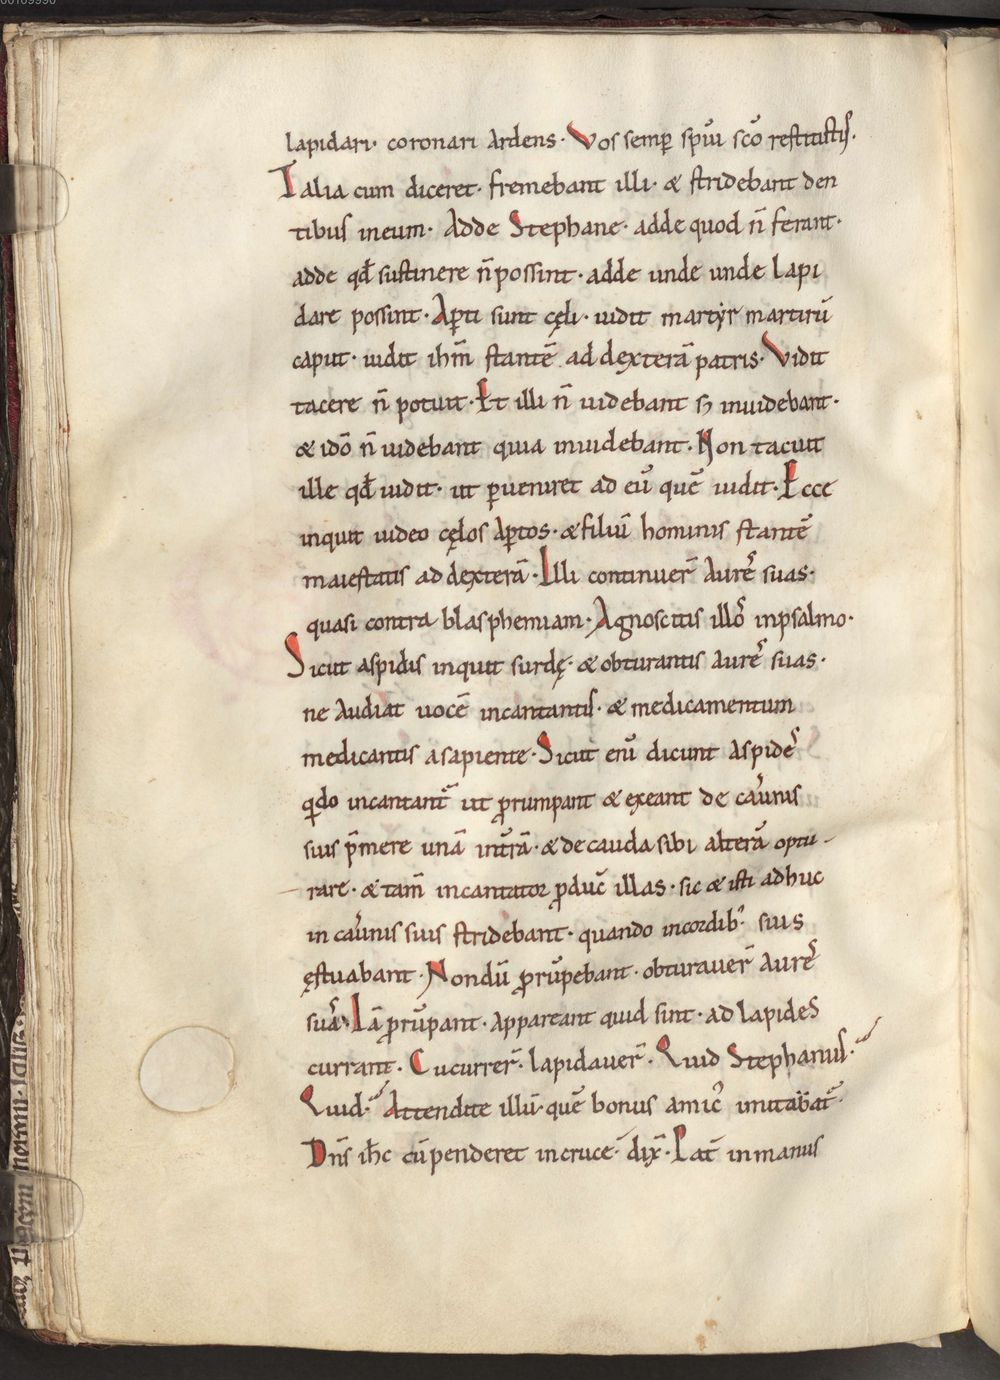 lapidari· coronari ardens· Vos semp̲ sp̅ui sc̅o restitistis·
Talia cum diceret· fremebant illi· & stridebant den
tibus ineum· Adde Stephane· adde quod n̅ ferant·
adde qđ sustinere n̅ possint· adde unde unde lapi
dare possint· Ap̲ti sunt cęli· uidit martẏr martirū
caput· uidit ihm̅ stantē ad dexterā patris· Vidit
tacere n̅ potuit· Et illi n̅ uidebant ꞩ inuidebant·
& idō n̅ uidebant quia inuidebant· Non tacuit
ille qđ uidit· ut p̲ueniret ad eū quē uidit· Ecce
inquit uideo cęlos ap̲tos· & filiū hominis stantē
maiestatis ad dexterā· Illi continuer̅ aurēs suas·
quasi contra blasphemiam· Agnoscitis illos inpsalmo·
Sicut aspidis inquit surdę· & obturantis aures suas·
ne audiat uocē incantantis· & medicamentum
medicantis a sapiente· Sicut enī dicunt aspides
qͣdo incantant᷑ ut ꝓrumpant & exeant de cau̓nis
suis p̅mere unā int̓rā· & de cauda sibi alterā optu-
rare· & tam̅ incantator ꝓduc̅ illas· sic & isti adhuc
in cau̓nis suis stridebant· quando incordib; suis
ęstuabant· Nondū ꝓrūpebant· obturauer̅ aures
suas· Iā ꝓrūpant· appareant quid sint· ad lapides
currant· Cucurrer̅· lapidauer̅· Quid Stephanus·
Quid· Attendite illū· quē bonus amic᷒ imitabat᷑·
Dn̅s ih̅c cū penderet in cruce· dix̅· Pat̅ in manus